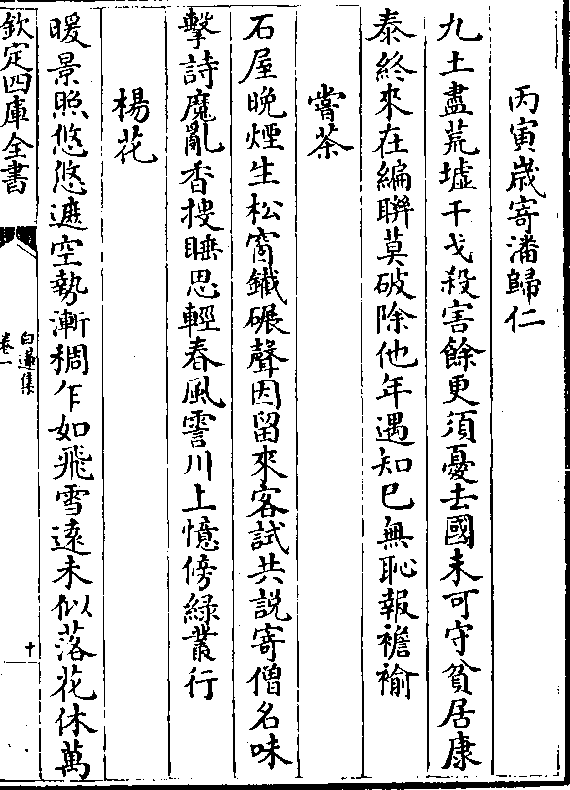 丙寅歳寄潘歸仁
九土盡荒墟干戈殺害餘更須憂去國未可守貧居康
泰終來在編聨莫破除他年遇知已無恥報襜褕
嘗茶
石屋晩煙生松窗鐵碾聲因留來客試共説寄僧名味
擊詩魔亂香搜睡思輕春風霅川上憶傍緑叢行
楊花
暖景照悠悠遮空勢漸稠乍如飛雪遠未似落花休萬
欽定四庫全書
白蓮集
卷一
十